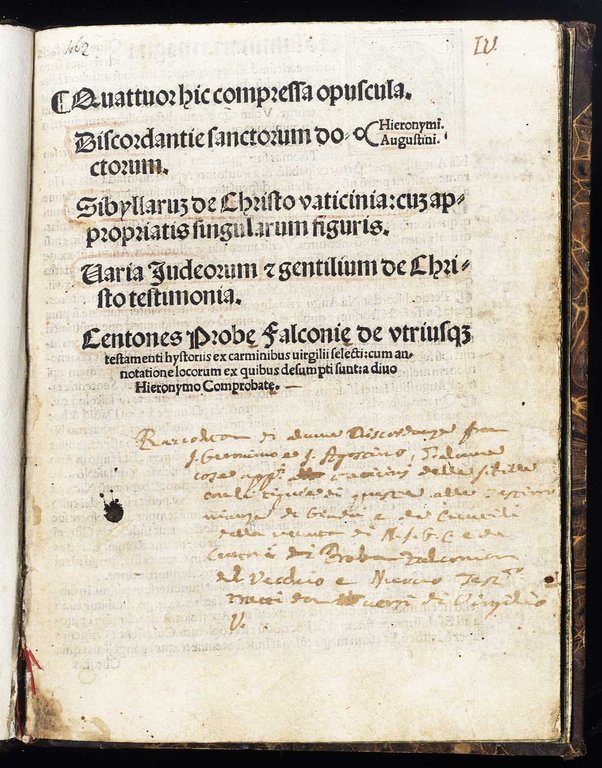 462
IV.
¶Quattuor hic compressa opuscula.
Discordantie sanctorum do- Hieronymi.
ctorum. Augustini.
Sibyllaruʒ de Christo vaticinia: cuʒ ap-
propriatis singularum figuris.
Uaria Judeorum ⁊ gentilium de Chri-
sto testimonia.
Centones Probę Falconię de vtriusqʒ
testamenti hystoriis ex carminibus uirgilii selecti: cum an-
notatione locorum ex quibus desumpti sunt: a diuo
Hieronymo Comprobatę.
Raccolta di alcune Discordanze fra
S. Geronimo e S. Agostino, d'alcune
cose delle sibille
con le figure di queste alle testimo
nianze di Giudei e di Gentili
della venuta di N. S. G. C. e de
Centoni di Proba Falconia
del Vecchio e Nuovo Test.º
tratti da versi di Virgilio
V.